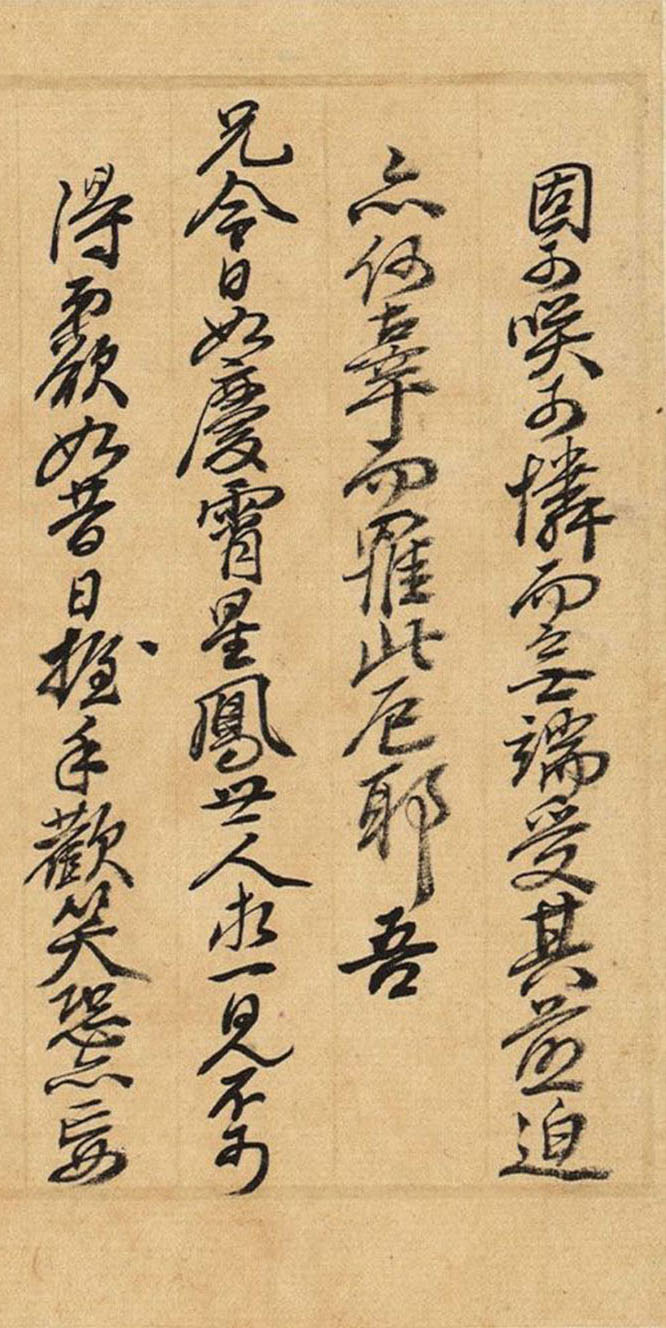 固可咲可憐而無端受其煎迫
亦何辜而罹此厄耶吾
兄今日如慶霄星鳳世人求一見不可
得而欲如昔日握手歡笑恐亦妄